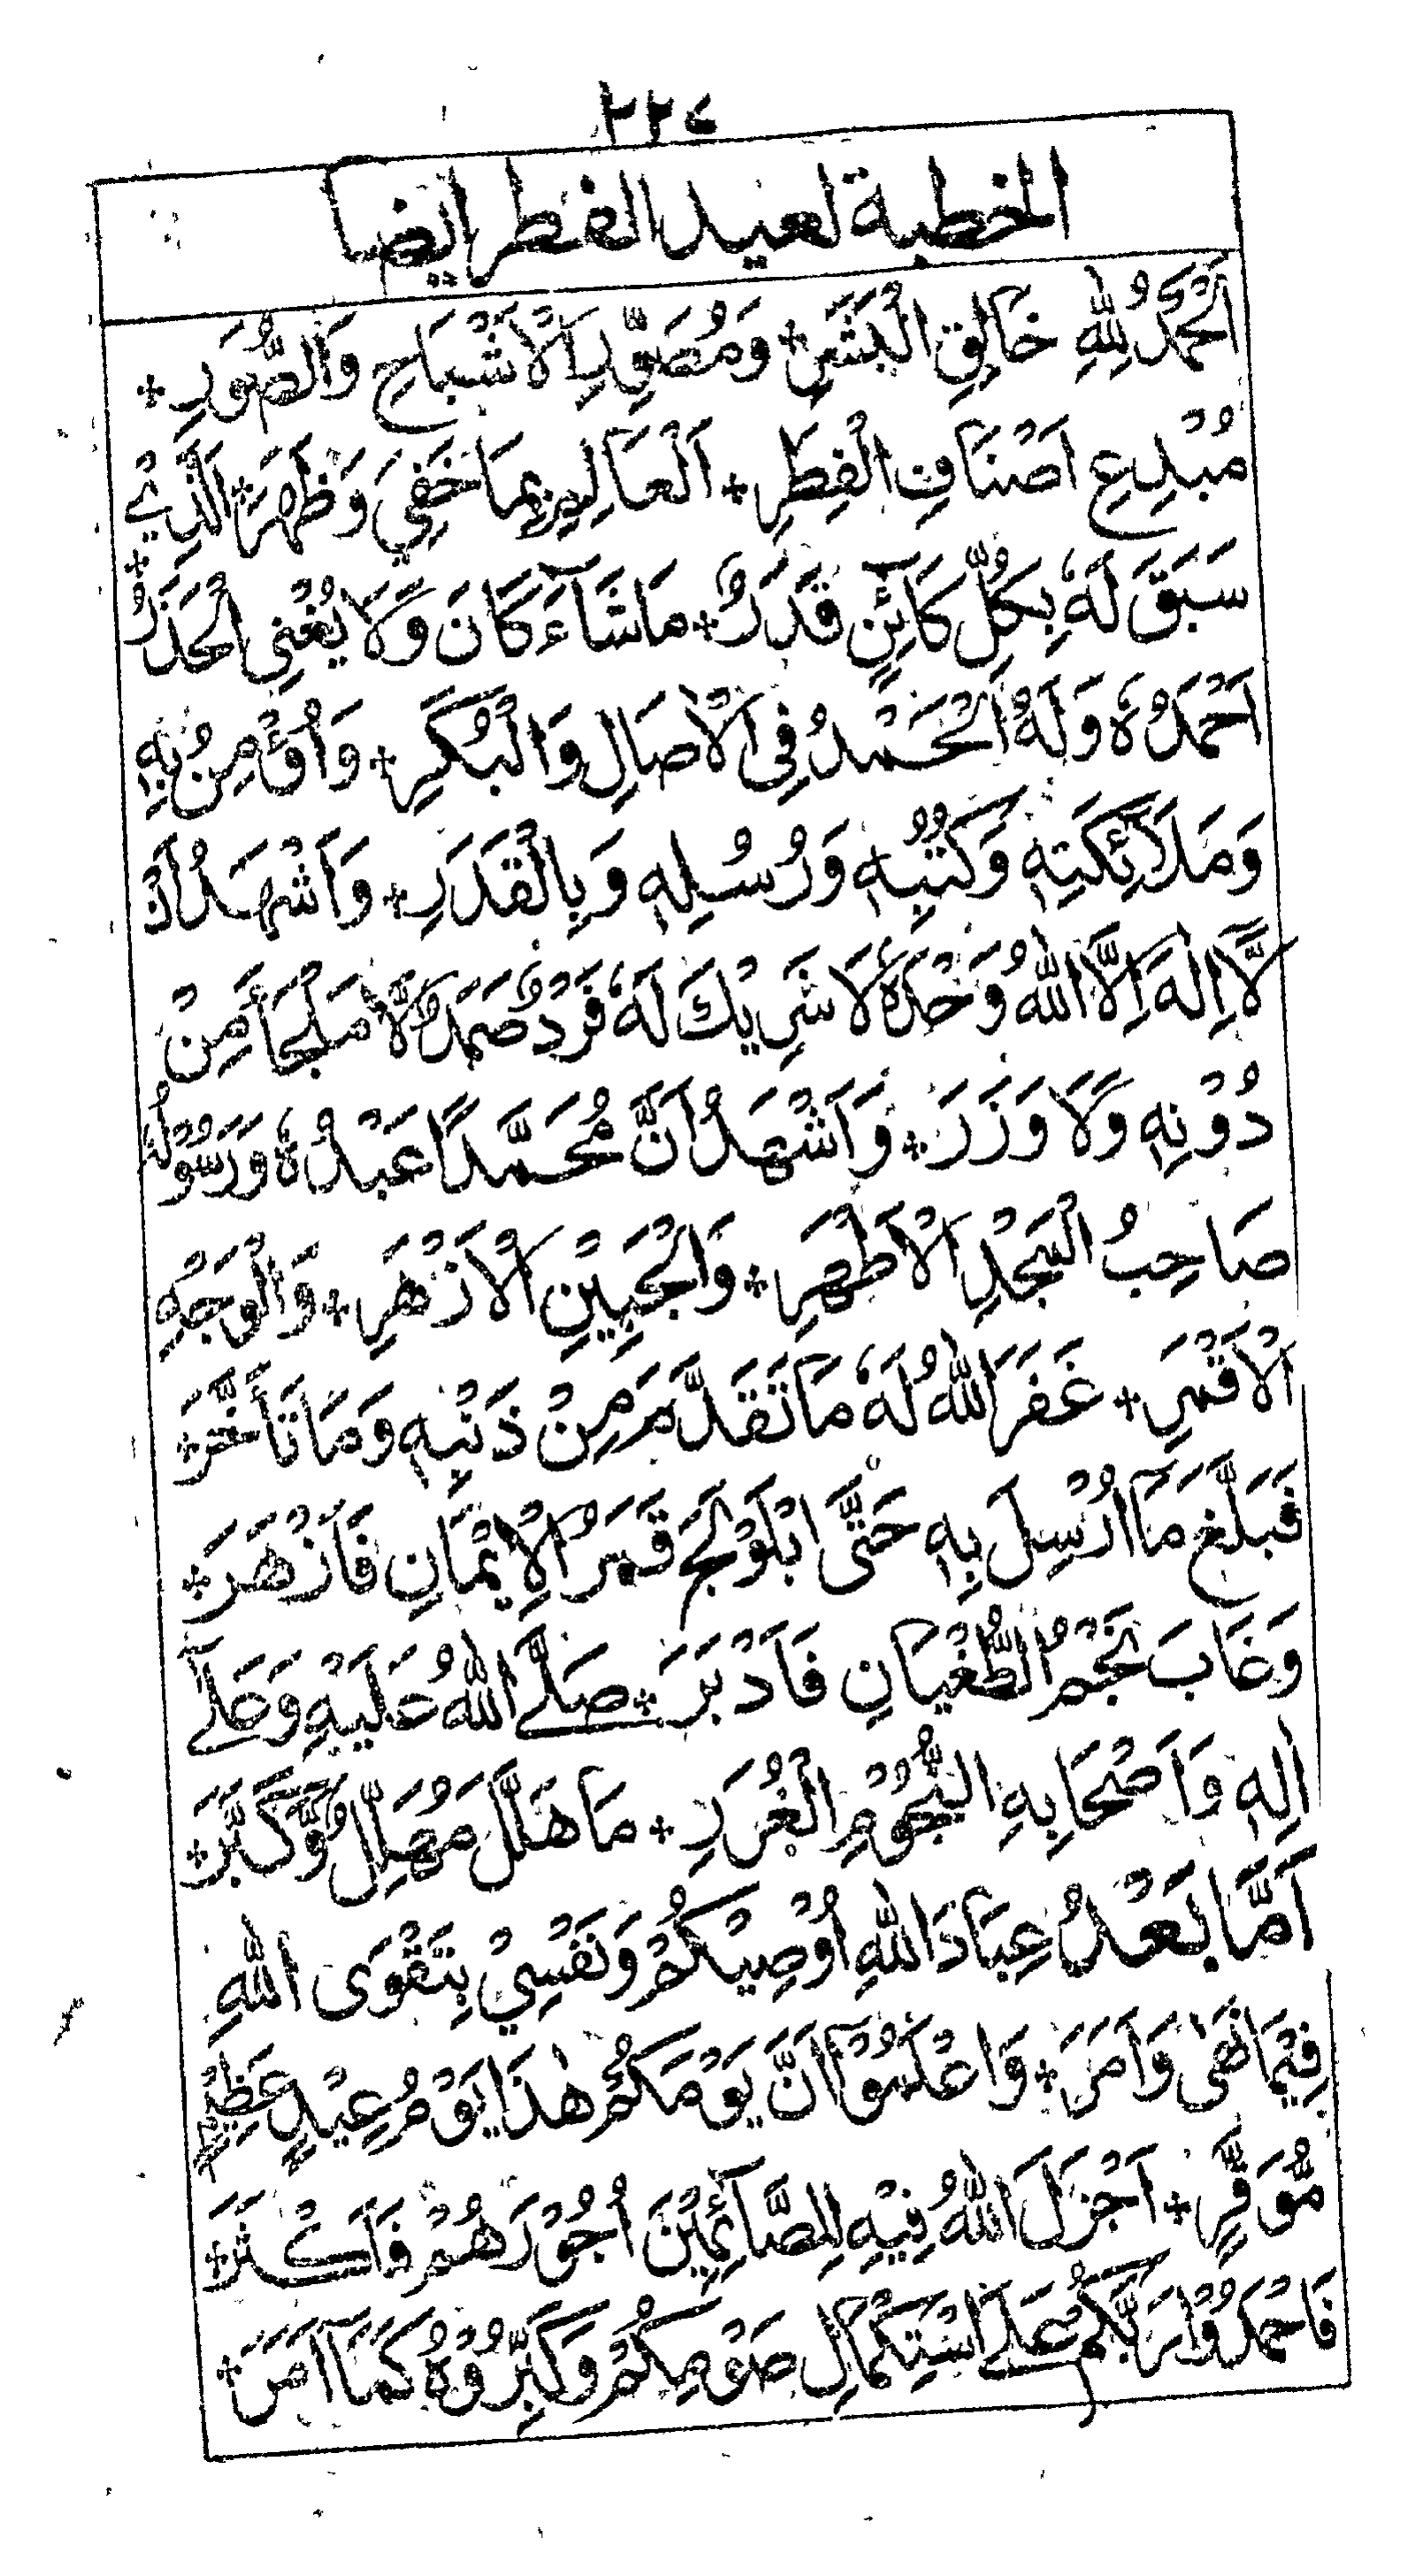 ٢٢٧
الخطبة لعيد الفطر ايضا
اَلْحَمْدُ لِلّٰهِ خَالِقِ الْبَشَرِ + وَمُصَوِّرِ الْاَشْبَاحِ وَالصُّوَرِ +
مُبْدِعِ اَصْنَافِ الْفِطَرِ + اَلْعَالِمِ بِمَا خَفِيَ وَظَهَرَ + الَّذِيْ
سَبَقَ لَهٗ بِكُلِّ كَائِنٍ قَدَرٌ + مَا شَآءَ كَانَ وَلَا يُغْنِى الْحَذَرُ +
اَحْمَدُهٗ وَلَهُ الْحَمْدُ فِى الْاٰصَالِ وَالْبُكَرِ + وَاُؤْمِنُ بِهٖ
وَمَلَائِكَتِهٖ وَكُتُبِهٖ وَرُسُلِهٖ وَبِالْقَدَرِ + وَاَشْهَدُ اَنْ
لَّا اِلٰهَ اِلَّا اللّٰهُ وَحْدَهٗ لَا شَرِيْكَ لَهٗ فَرْدٌ صَمَدٌ لَّا مَلْجَأَ مِنْ
دُوْنِهٖ وَلَا وَزَرَ + وَاَشْهَدُ اَنَّ مُحَمَّدًا عَبْدُهٗ وَرَسُوْلُهٗ
صَاحِبُ الْمَجْدِ الْاَطْهَرِ + وَالْجَبِيْنِ الْاَزْهَرِ + وَالْوَجْهِ
الْاَقْمَرِ + غَفَرَ اللّٰهُ لَهٗ مَا تَقَدَّمَ مِنْ ذَنْبِهٖ وَمَا تَأَخَّرَ +
فَبَلَّغَ مَآ اُرْسِلَ بِهٖ حَتَّى ابْلَوْلَجَ قَمَرُ الْاِيْمَانِ فَاَزْهَرَ +
وَغَابَ نَجْمُ الطُّغْيَانِ فَاَدْبَرَ + صَلَّے اللّٰهُ عَلَيْهِ وَعَلٰٓے
اٰلِهٖ وَاَصْحَابِهِ النُّجُوْمِ الْغُرَرِ + مَا هَلَّلَ مُهَلِّلٌ وَّكَبَّرَ +
اَمَّا بَعْدُ عِبَادَ اللّٰهِ اُوْصِيْكُمْ وَنَفْسِيْ بِتَقْوَى اللّٰهِ
فِيْمَا نَهٰى وَاَمَرَ + وَاعْلَمُوْٓا اَنَّ يَوْمَكُمْ هٰذَا يَوْمُ عِيْدٍ عَظِيْمٍ
مُّوَقَّرٍ + اَجْزَلَ اللّٰهُ فِيْهِ لِلصَّآئِمِيْنَ اُجُوْرَهُمْ فَاَكْثَرَ +
فَاحْمَدُوْا رَبَّكُمْ عَلَے اسْتِكْمَالِ صَوْمِكُمْ وَكَبِّرُوْهُ كَمَآ اَمَرَ +